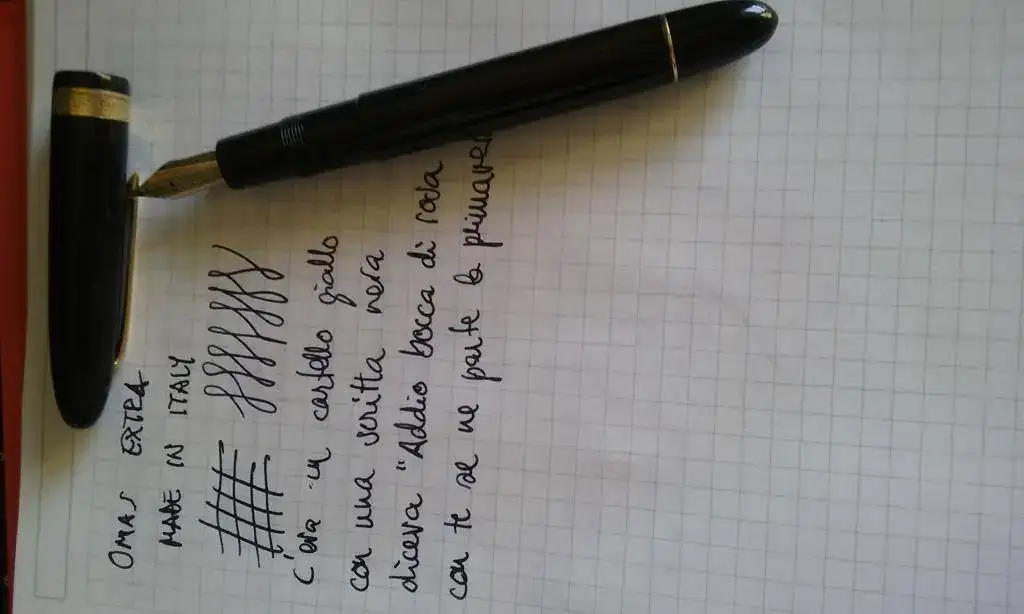 OMAS EXTRA
MADE IN ITALY
C'era un cartello giallo
con una scritta nera
diceva "Addio bocca di rosa
con te se ne parte la primavera